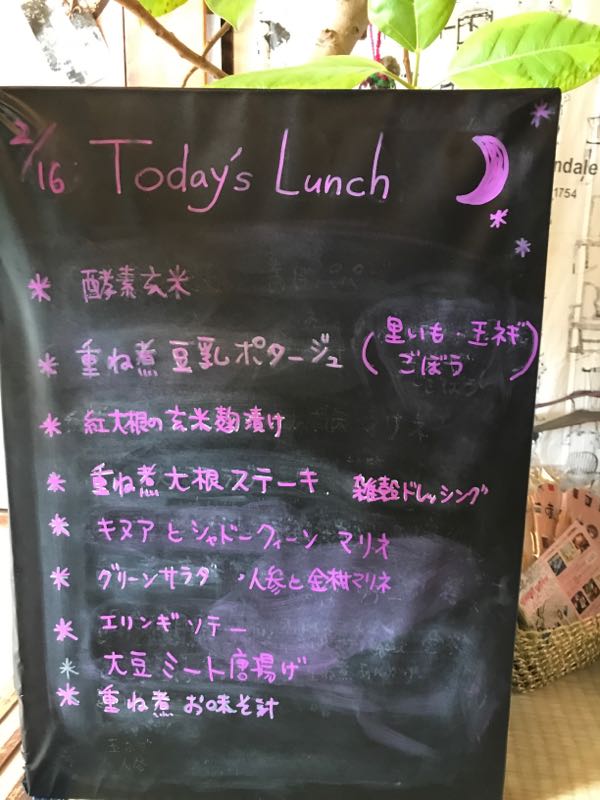 2/16 Today's Lunch
ndale
1754
* 酵素玄米
* 重ね煮 豆乳ポタージュ (里いも・玉ネギ
ごぼう)
* 紅大根の玄米麹漬け
* 重ね煮 大根ステーキ 雑穀ドレッシング
* キヌアとシャドークィーン マリネ
* グリーンサラダ ・人参と金柑マリネ
* エリンギソテー
* 大豆ミート唐揚げ
* 重ね煮 お味そ汁